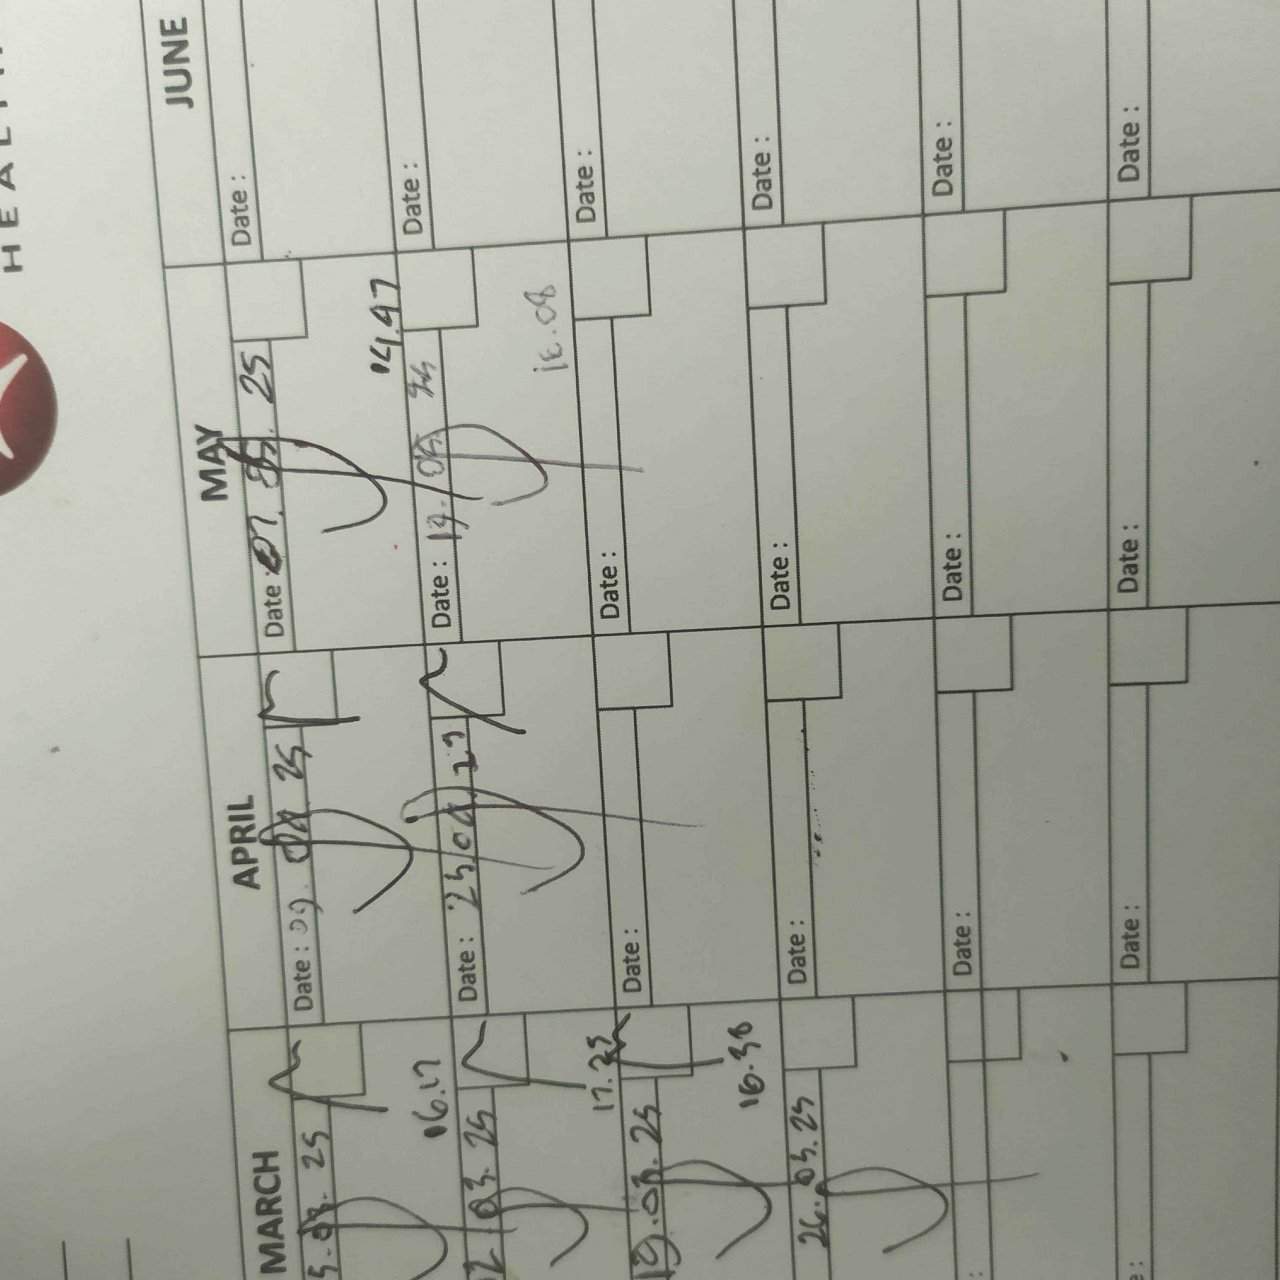 HEALTH
MARCH
APRIL
MAY
JUNE
5.03.25
Date: 09.04.25
Date: 07.05.25
Date:
16.17
14.47
03.25
Date: 23.04.25
Date: 19.05.25
Date:
17.25
19.03.25
Date:
Date:
Date:
16.38
26.03.25
Date:
Date:
Date:
Date:
Date:
Date:
Date:
Date:
Date: